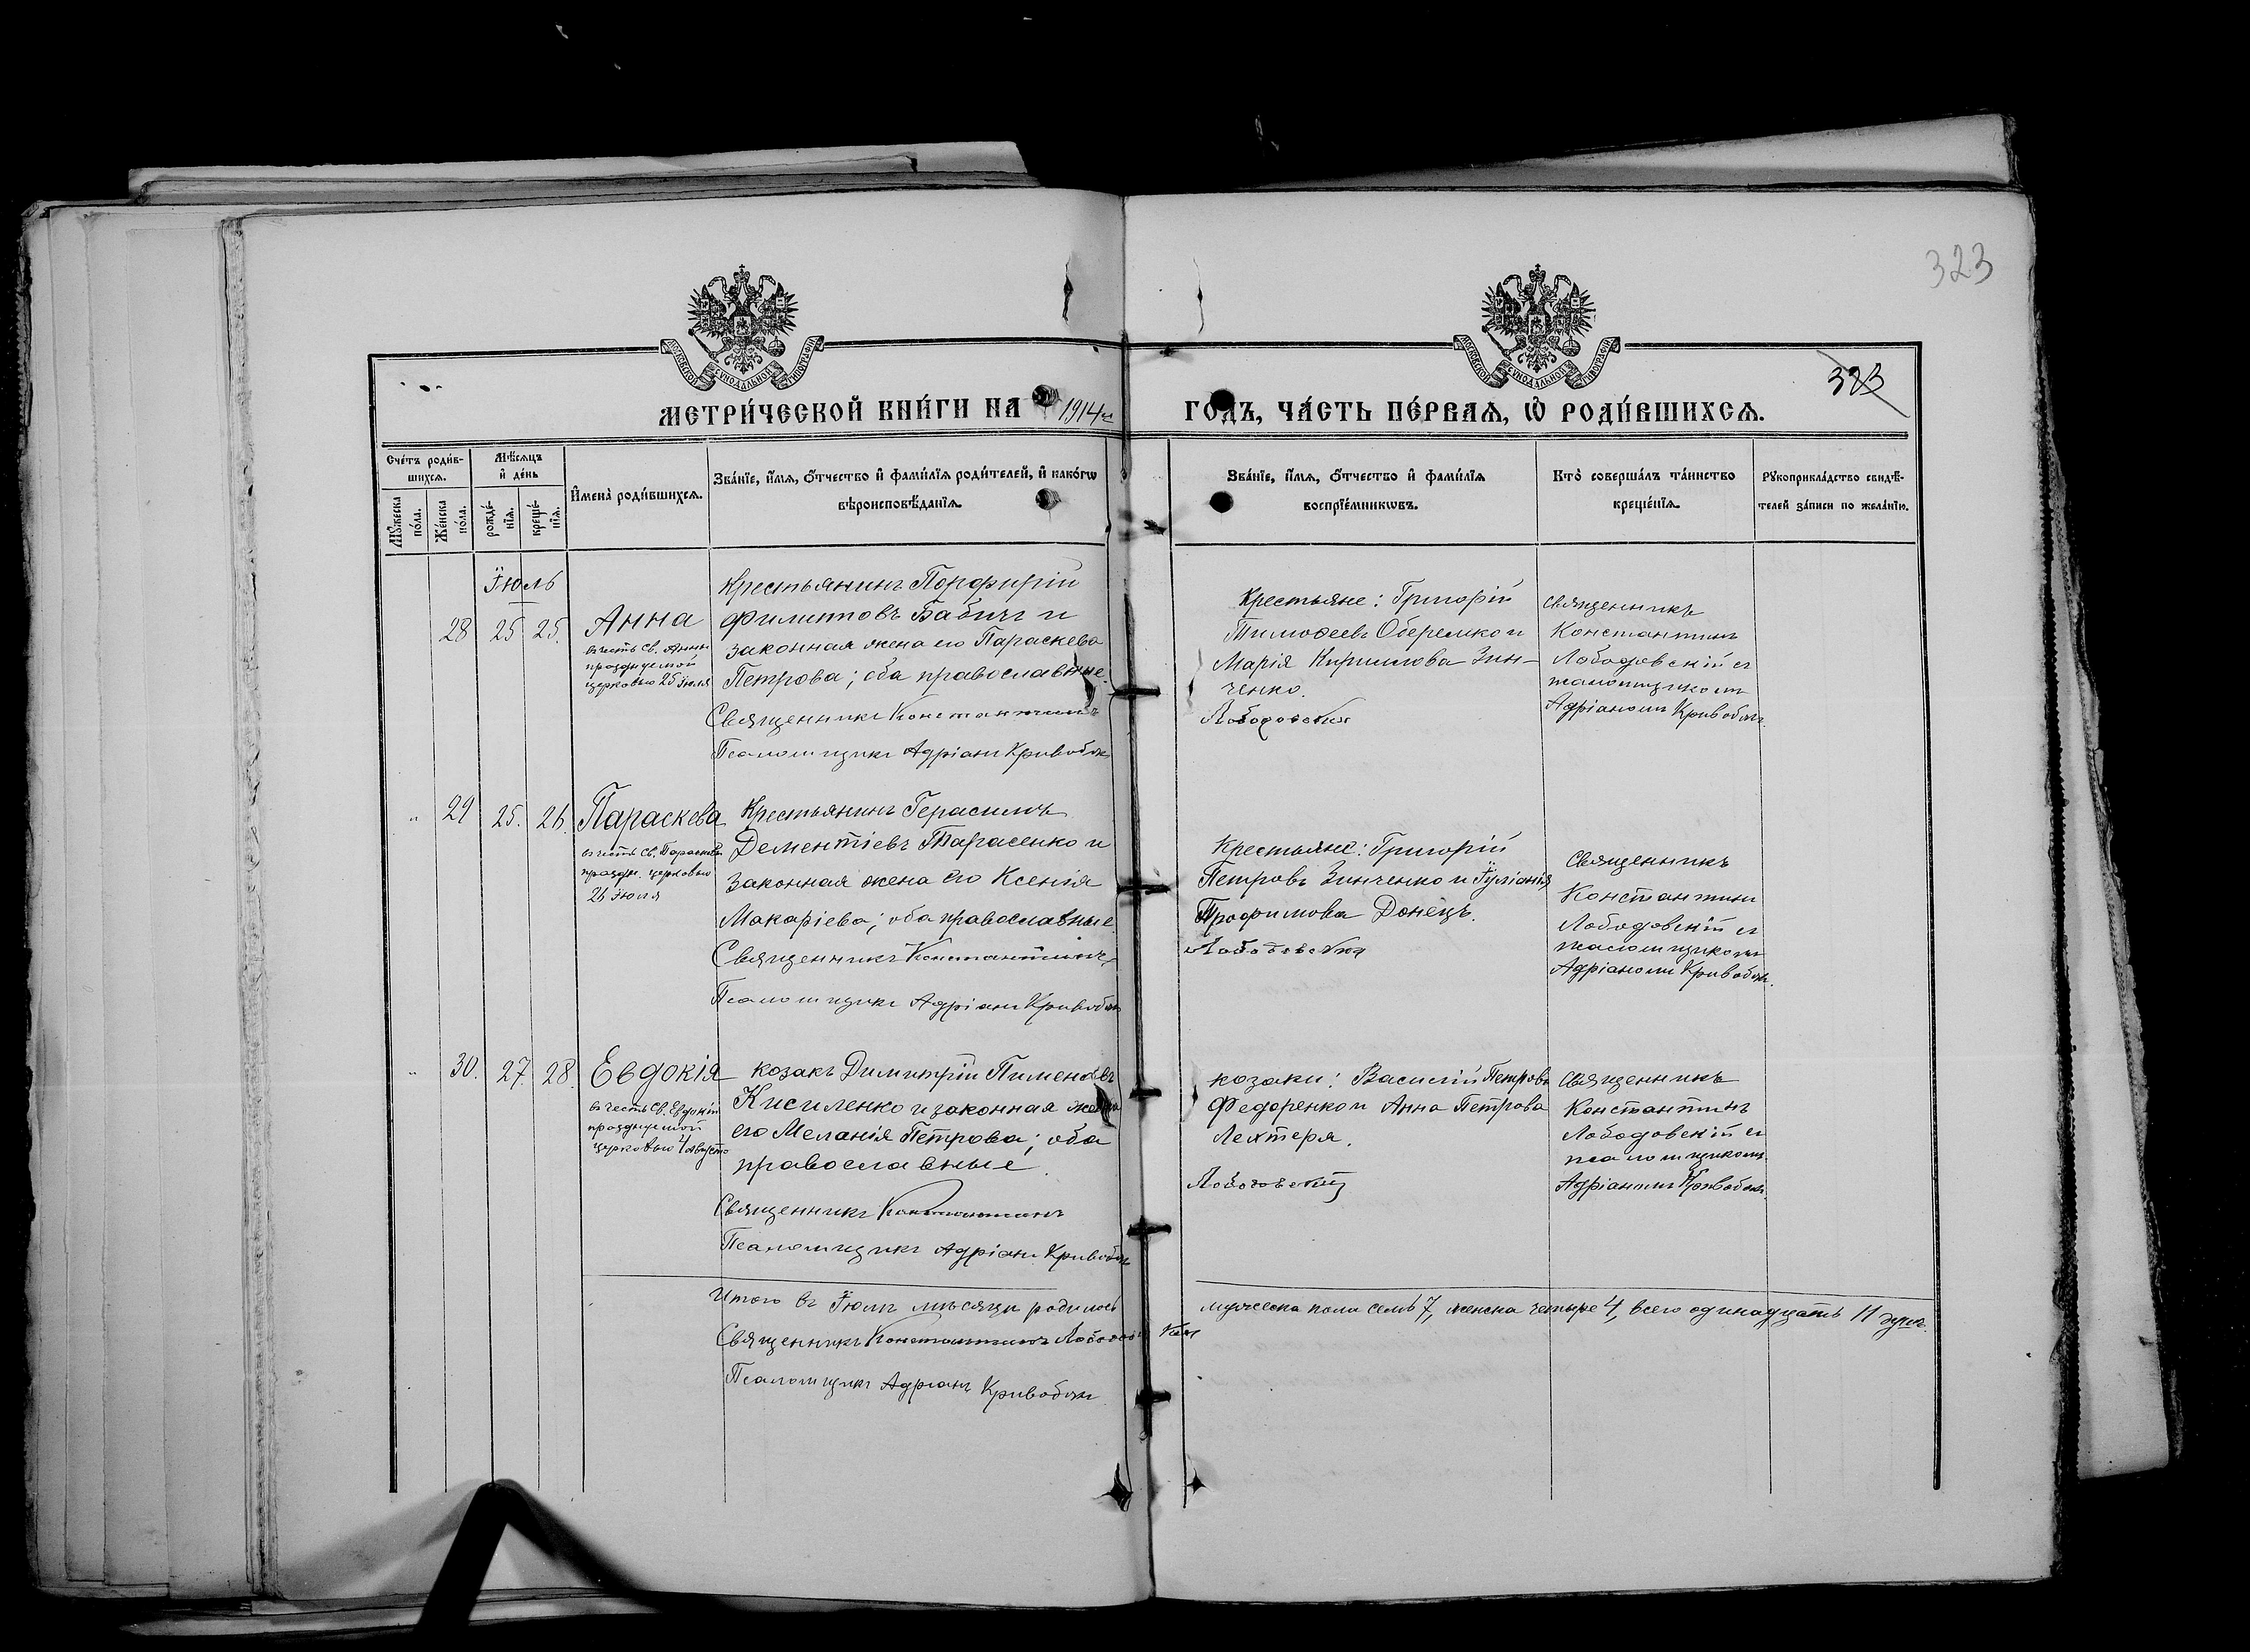 323
323
МОСКОВСКОЙ СУНОДАЛЬНОЙ ТИПОГРАФІИ
МОСКОВСКОЙ СУНОДАЛЬНОЙ ТИПОГРАФІИ
МЕТРИ́ЧЕСКОЙ КНИ́ГИ НА 1914й ГО́ДЪ, ЧА́СТЬ ПЕ́РВАЯ, Ѡ РОДИ́ВШИХСЯ.
Сче́тъ роди́в-
шихся.
Му́жеска по́ла.
Же́нска по́ла.
Мѣ́сяцъ
и де́нь
рожде́-
нїя.
креще́-
нїя.
Имена̀ роди́вшихся.
Зва́нїе, и́мя, о́тчество и фами́лїя роди́телей, и како́гѡ
вѣроисповѣ́данїя.
Зва́нїе, и́мя, о́тчество и фами́лїя
воспрїе́мникѡвъ.
Кто̀ соверша́лъ та́инство
креще́нїя.
Рукоприкла́дство свидѣ́-
телей за́писи по жела́нїю.
Іюль
28 25 25.
Анна
въ честь св. Анны
празднуемой
церковью 25 Іюля
Крестьянинъ Порфирій
Филипповъ Бабичъ и
законная жена его Параскева
Петрова; оба православные.
Священникъ Константинъ
Псаломщикъ Адріанъ Кривобокъ
Крестьяне: Григорій
Тимофеевъ Оберемко и
Марія Кириллова Зин-
ченко.
Лободовскій
Священникъ
Константинъ
Лободовскій съ
псаломщикомъ
Адріаномъ Кривобокъ.
" 29 25. 26.
Параскева
въ честь св. Параскевы
праздн. церковью
26 Іюля
Крестьянинъ Герасимъ
Дементіевъ Тарасенко и
законная жена его Ксенія
Макаріева; оба православные.
Священникъ Константинъ
Псаломщикъ Адріанъ Кривобокъ
Крестьяне: Григорій
Петровъ Зинченко и Іуліанія
Трофимова Донецъ.
Лободовскій
Священникъ
Константинъ
Лободовскій съ
псаломщикомъ
Адріаномъ Кривобокъ.
" 30. 27. 28.
Евдокія
въ честь св. Евдокіи
празднуемой
церковью 4 августа
козакъ Димитрій Пименовъ
Кисиленко и законная жена
его Меланія Петрова; оба
православные.
Священникъ Константинъ
Псаломщикъ Адріанъ Кривобокъ
козаки: Василій Петровъ
Федоренко и Анна Петрова
Лехтеря.
Лободовскій
Священникъ
Константинъ
Лободовскій съ
псаломщикомъ
Адріаномъ Кривобокъ.
Итого въ Іюлѣ мѣсяцѣ родилось мужеска пола семь 7, женска четыре 4, всего одинадцать 11 душъ.
Священникъ Константинъ Лободовскій
Псаломщикъ Адріанъ Кривобокъ